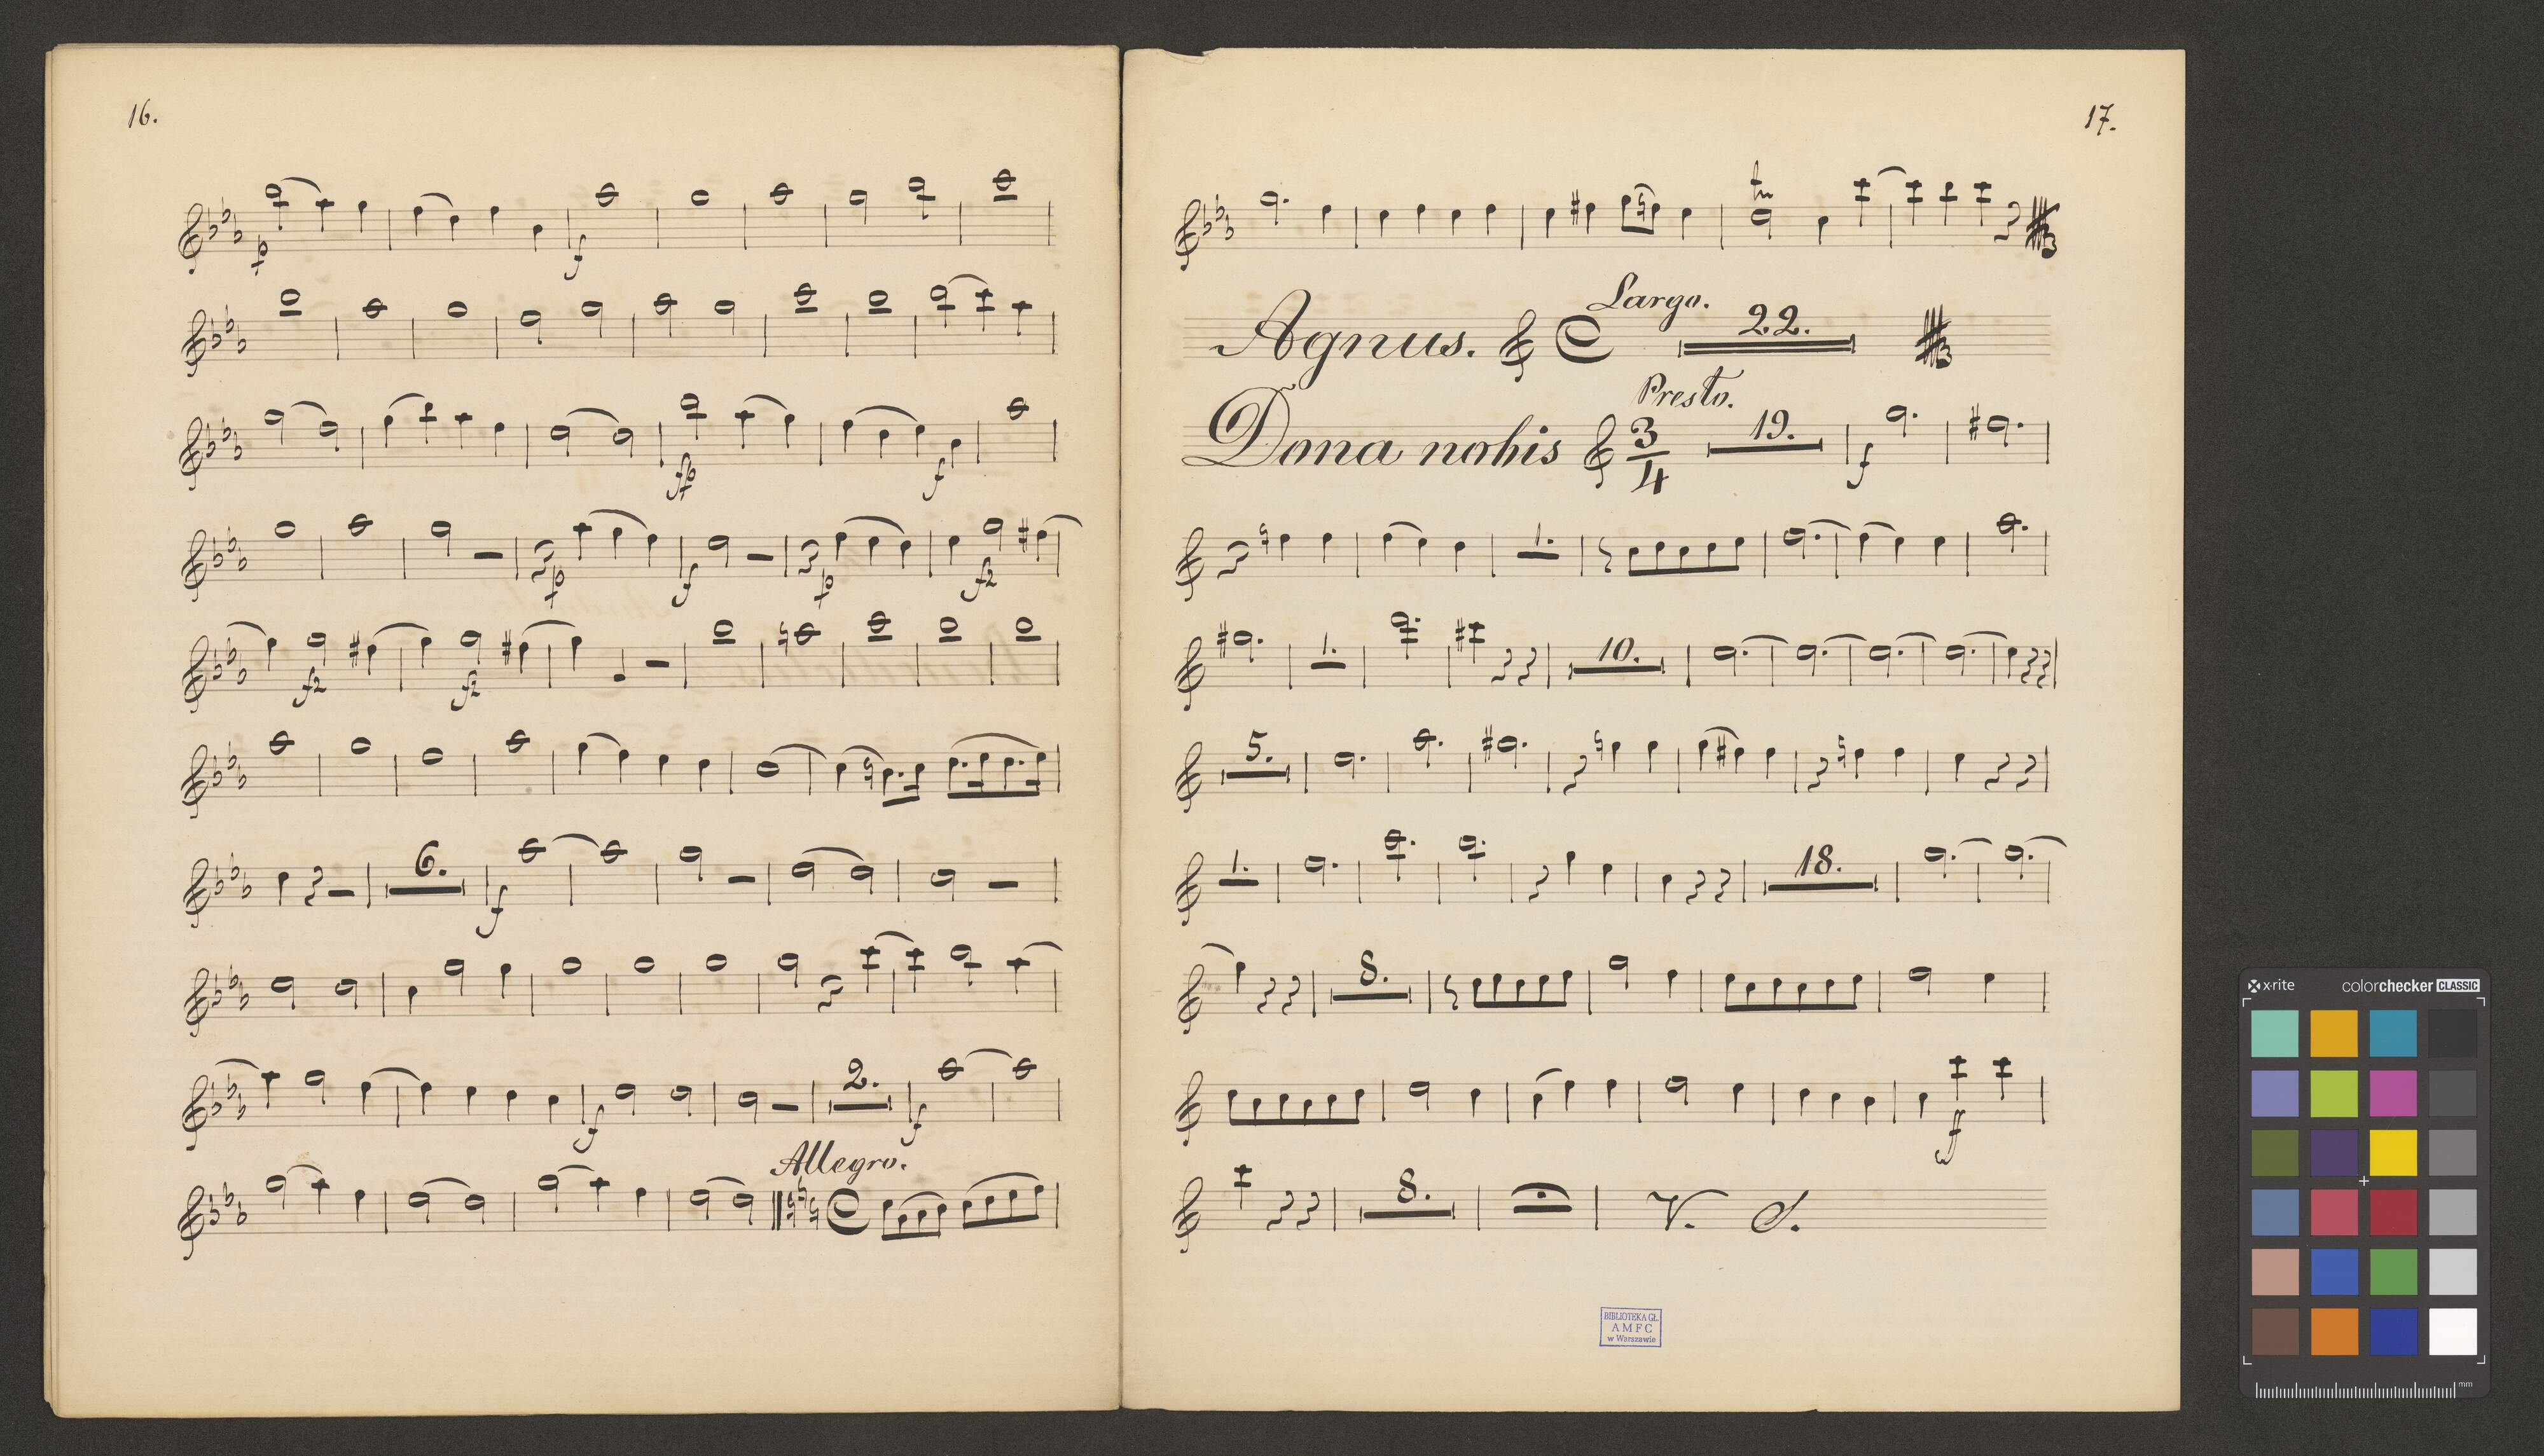 16.
p f
fp f
p f p fz
fz fz
6.
f
f 2. f
Allegro.
17.
tr
Largo.
Agnus. 22.
Presto.
Dona nobis 3/4 19. f
1.
1. 10.
5.
1. 18.
8.
ff
8. V. S.
BIBLIOTEKA GŁ.
AMFC
w Warszawie
x-rite colorchecker CLASSIC
mm